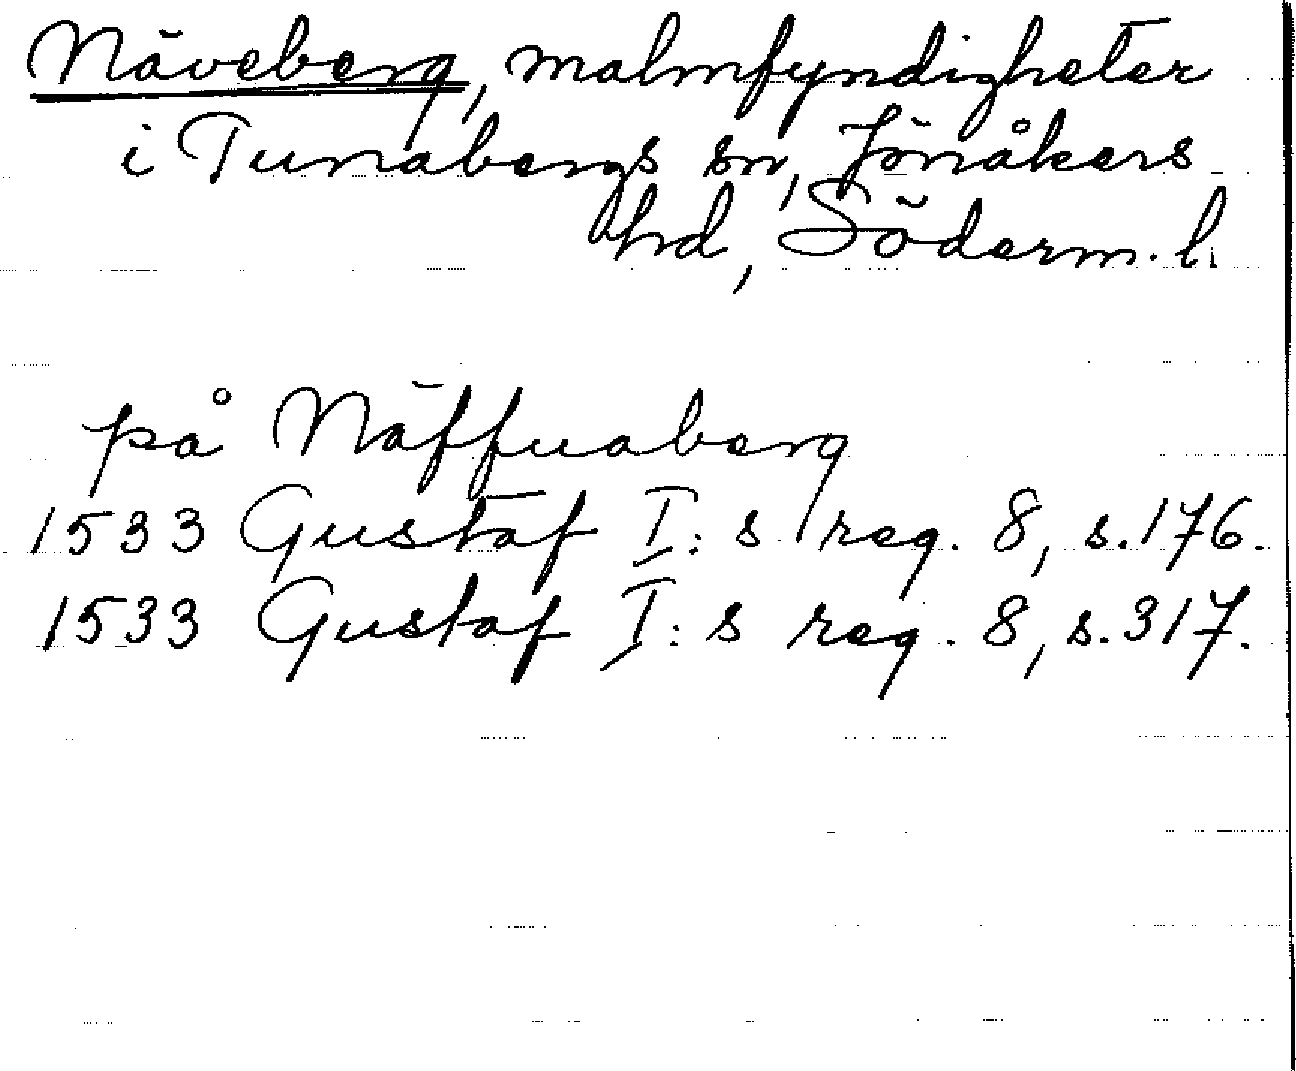 Näveberg, malmfyndigheter
i Tunabergs sn, Jönåkers
hd, Söderm. l.
på Näffuaberg
1533 Gustaf I:s reg. 8, s. 176.
1533 Gustaf I:s reg. 8, s. 317.